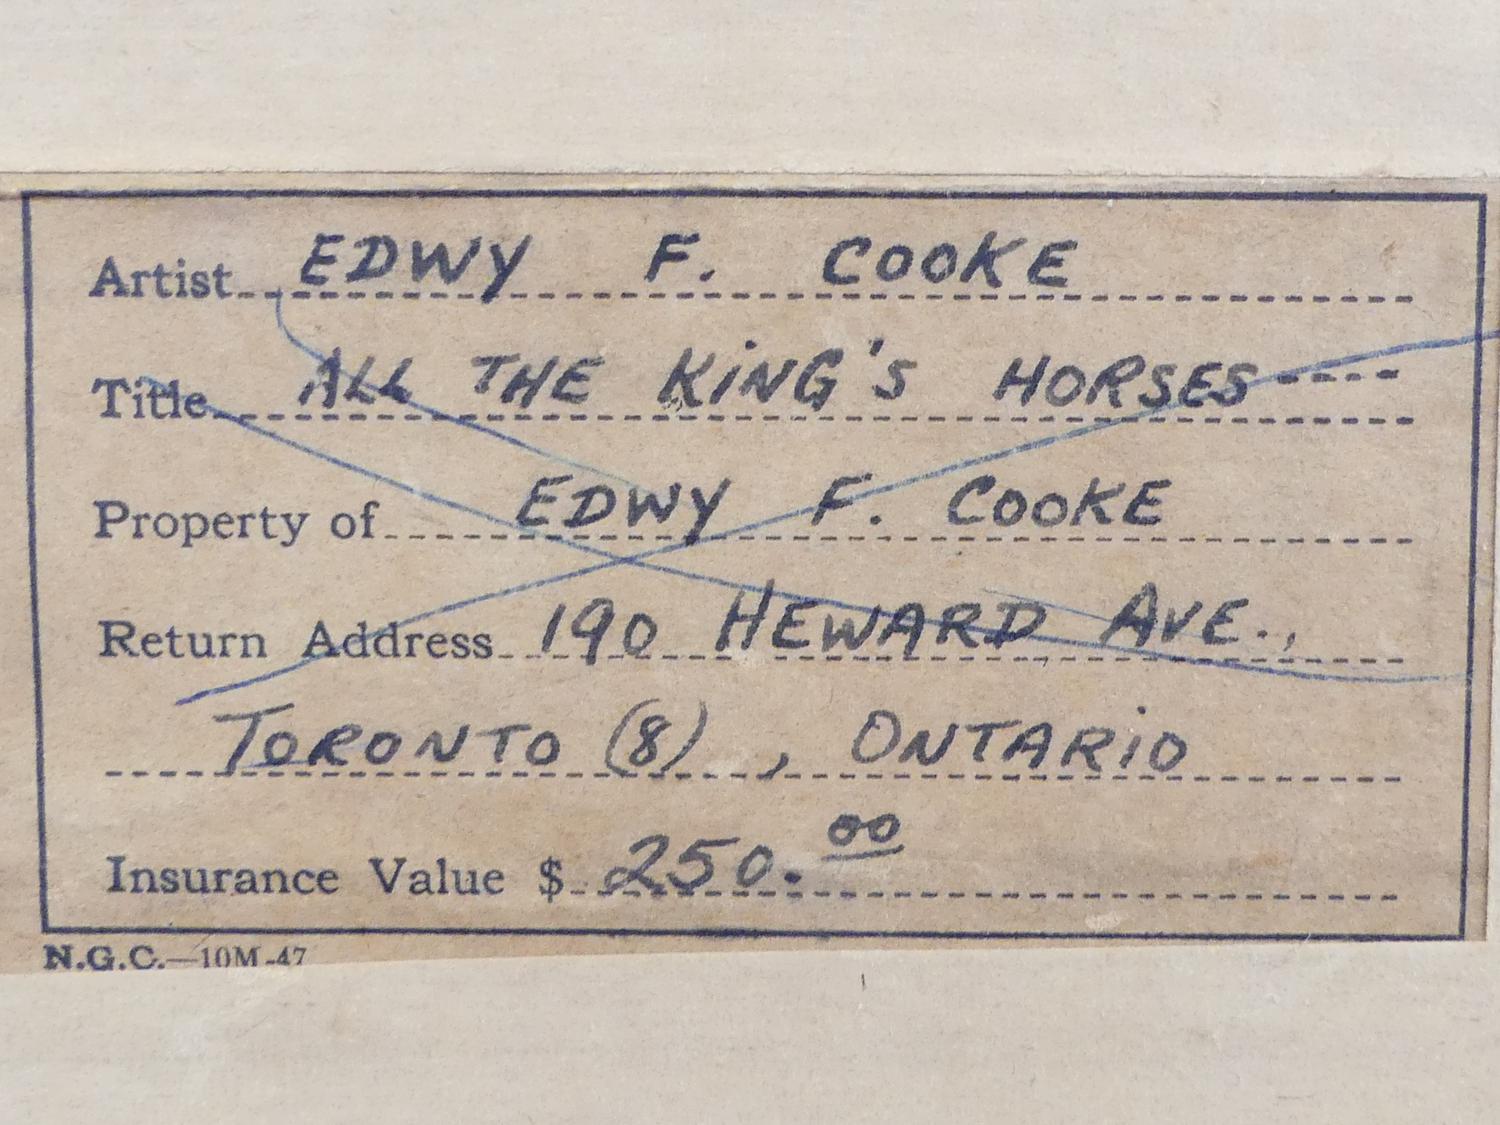 Artist EDWY F. COOKE
Title ALL THE KING'S HORSES ----
Property of EDWY F. COOKE
Return Address 190 HEWARD AVE.,
TORONTO (8), ONTARIO
Insurance Value $ 250.00
N.G.C.—10M-47